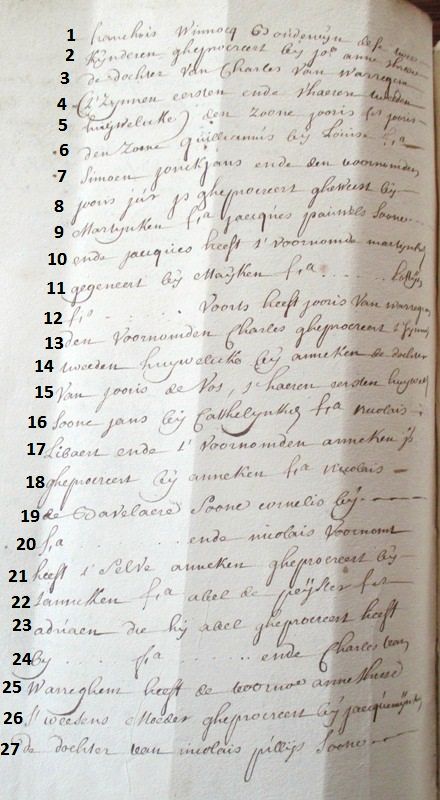 1 franchois Winnocq Boudewyn dese twee
2 Kynderen gheprocreert bij joe anne therese
3 de dochter van Charles van warregem
4 (t'zynnen eersten ende t'haeren tweeden
5 huywelicke) den zoone jooris fs jooris
6 den zone guilliaumus bij Louise fia
7 Simoen jonckjans ende den voornomden
8 jooris jur is gheprocreert gheweest bij
9 Martynken fia jacques pauwels Soone
10 ende jacques heeft t'voornomde martynken
11 gegenert bij Mayken fia . . . . .
12 fio . . . . . Voorts heeft jooris Van warregem
13 den Voornomden Charles gheprocreert t'synen
14 tweeden huywelicke bij anneken de dochter
15 Van jooris de Vos, t'haeren eersten huywel
16 Soone jans bij Cathelynken fia nicolais
17 Libaert ende t'Voornomden anneken is
18 gheprocreert bij anneken fia nicolais
19 de Bavelaere Soone cornelis bij
20 fia . . . . . ende nicolais voornomt
21 heeft t'Selve anneken gheprocreert bij
22 Tanneken fia abel de peijster fs
23 adriaen die hij abel gheprocreert heeft
24 bij . . . . fia . . . . . ende Charles van
25 Warreghem heeft de voorno anne therese
26 t'weesens Moeder gheprocreert bij jacquemijntken
27 de dochter van nicolais pillijs Soone